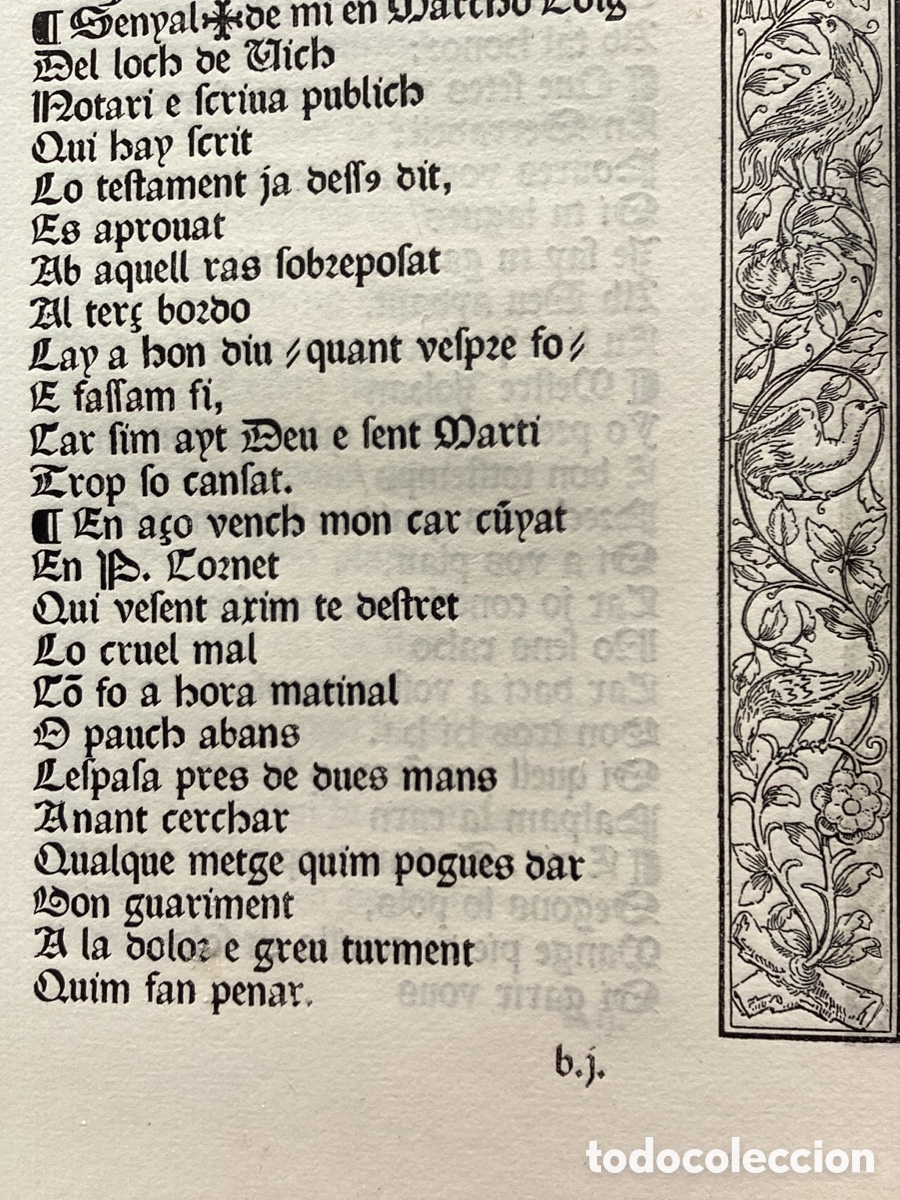 ¶ Senyal ✠ de mi en Marcho Loig
Del loch de Uich
Notari e ſcriua publich
Qui hay ſcrit
Lo teſtament ja deſſꝯ dit,
Es aprouat
Ab aquell ras ſobꝛepoſat
Al terç boꝛdo
Lay a hon diu ⸗quant veſpꝛe fo⸗
E faſſam fi,
Car ſim ayt Deu e ſent Marti
Trop ſo canſat.
¶ En aço vench mon car cūyat
En P. Coꝛnet
Qui veſent axim te deſtret
Lo cruel mal
Cō fo a hora matinal
O pauch abans
Leſpaſa pres de dues mans
Anant cerchar
Qualque metge quim pogues dar
Bon guariment
A la doloꝛ e greu turment
Quim fan penar.
b.j.
todocoleccion